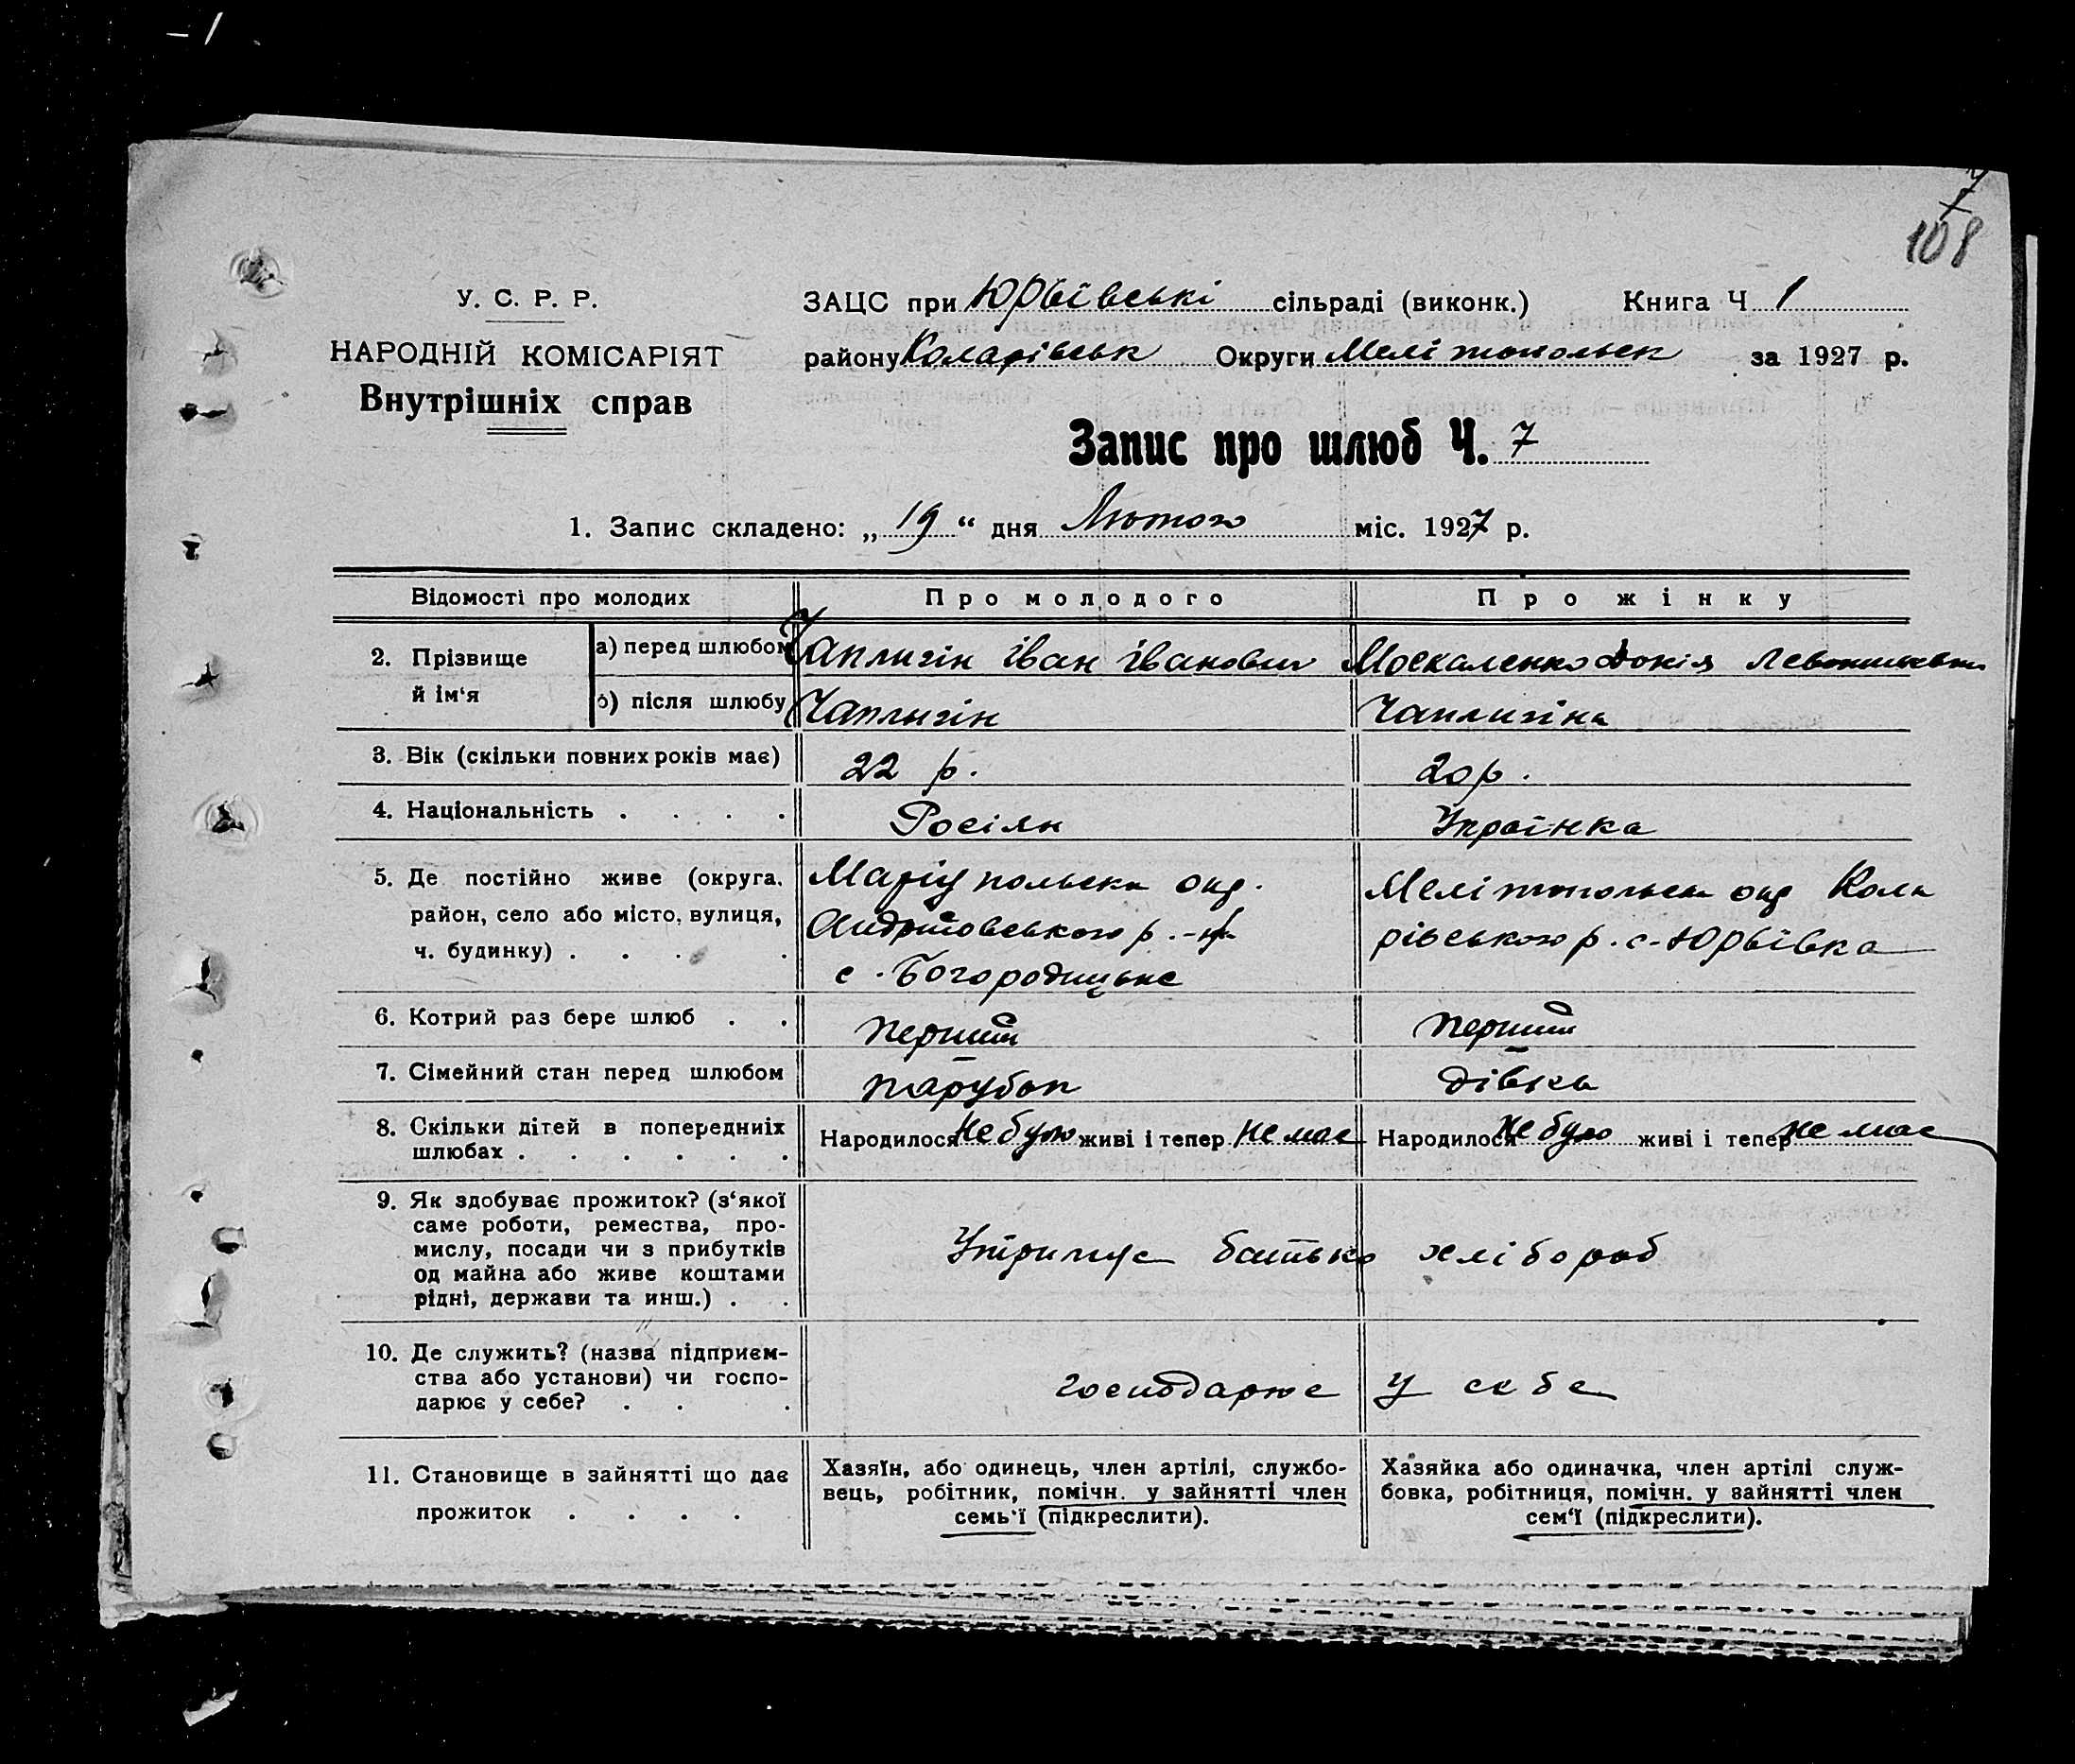 108
У. С. Р. Р.
НАРОДНІЙ КОМІСАРІЯТ
Внутрішніх справ
ЗАЦС при Юрьївські сільраді (виконк.) Книга Ч 1
району Коларівськ Округи Мелітопольск за 1927 р.
Запис про шлюб Ч. 7
1. Запис складено: „19“ дня Лютого міс. 1927 р.
Відомості про молодих Про молодого Про жінку
2. Прізвище й ім‘я
а) перед шлюбом Чаплигін Іван Іванович Москаленко Докія
б) після шлюбу Чаплигін Чаплигіна
3. Вік (скільки повних років має) 22 р. 20 р.
4. Національність . . . . Росіян Українка
5. Де постійно живе (округа, район, село або місто, вулиця, ч. будинку) . . . .
Маріупольска окр.
Андріївського р.
с. Богородицьке
Мелітопольська окр Кола
рівського р. с. Юрьївка
6. Котрий раз бере шлюб . . перший перший
7. Сімейний стан перед шлюбом парубок дівка
8. Скільки дітей в попередниіх шлюбах . . . . . .
Народилося не було живі і тепер не має Народилося не було живі і тепер не має
9. Як здобуває прожиток? (з‘якої
саме роботи, ремества, про-
мислу, посади чи з прибутків
од майна або живе коштами
рідні, держави та инш.) . .
Утримує батько хлібороб
10. Де служить? (назва підприєм-
ства або установи) чи госпо-
дарює у себе? . . .
господарює у себе
11. Становище в зайнятті що дає
прожиток . . . .
Хазяїн, або одинець, член артілі, службо-
вець, робітник, помічн. у зайнятті член
семь‘ї (підкреслити).
Хазяйка або одиначка, член артілі служ-
бовка, робітниця, помічн. у зайнятті член
сем‘ї (підкреслити).